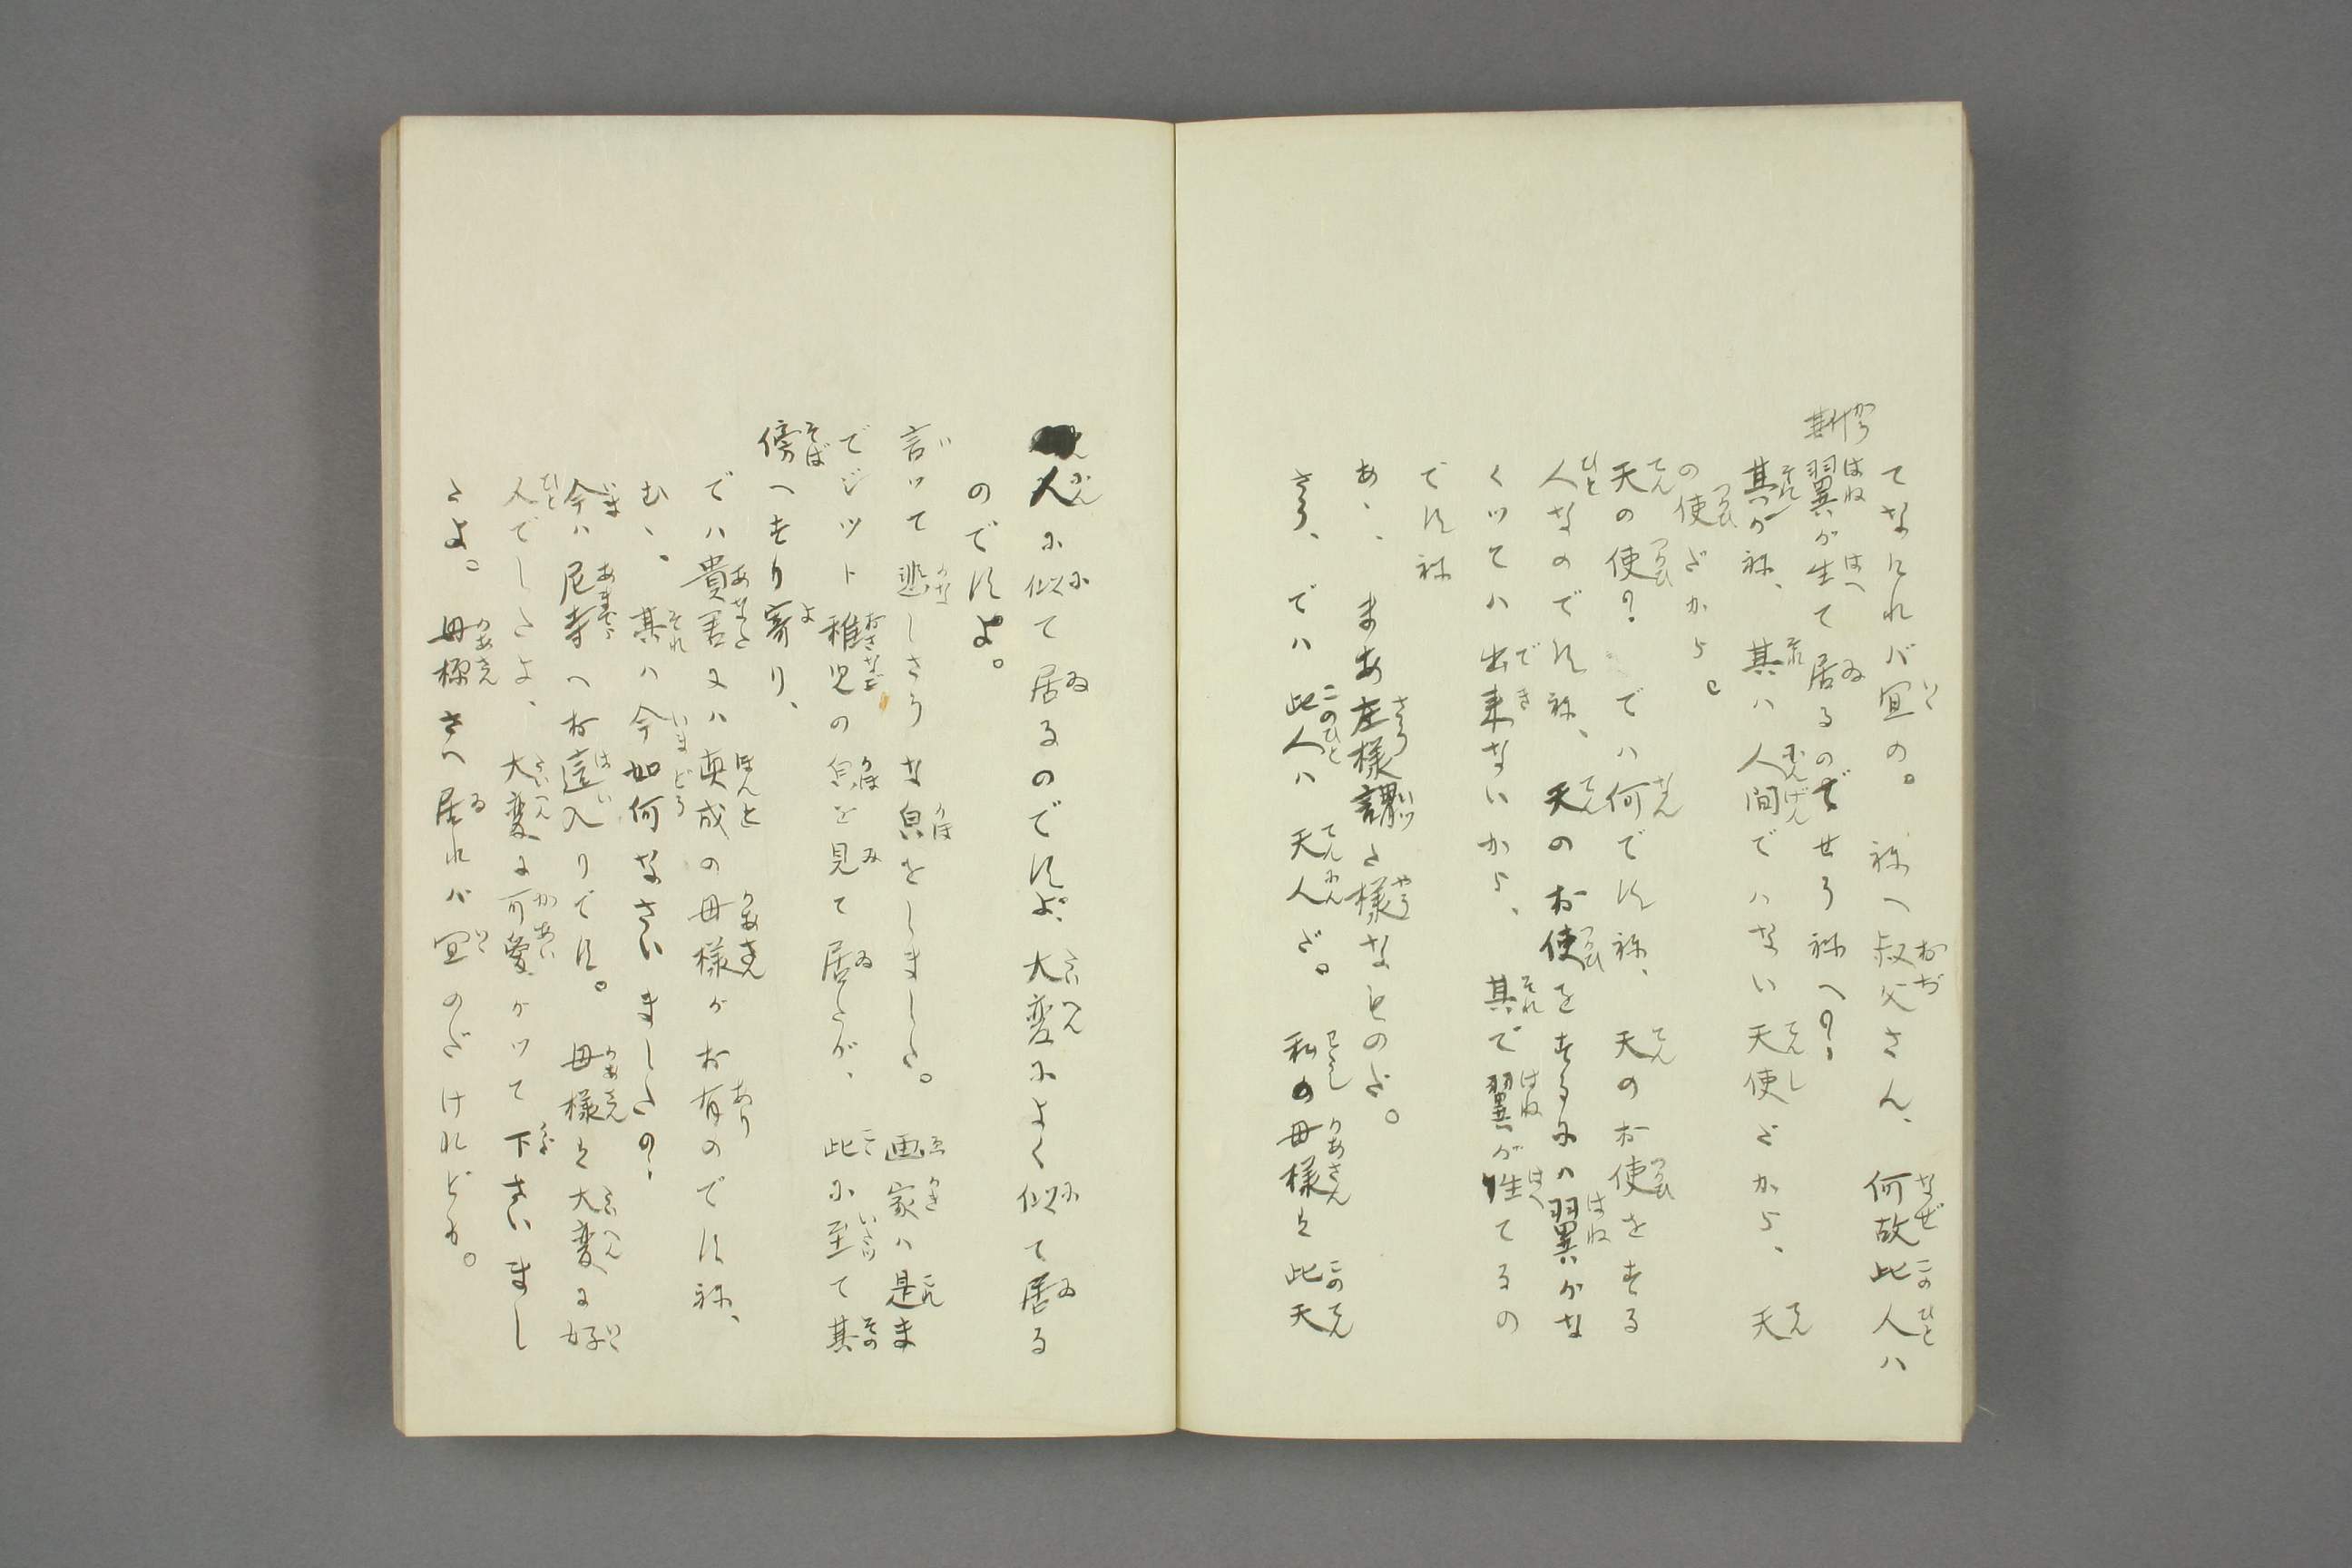 てなけれバ宜の。祢へ叔父さん、何故此人ハ
斯翼が生て居るのでせう祢へ？
其ハが祢、其ハ人間でハない天使だから、天
の使だから。
天の使？でハ何です祢、天のお使をする
人なのです祢、天のお使をするにハ翼がな
くツてハ出来ないから、其で翼が生てるの
です祢
あゝ、まあ左様謂た様なものだ。
さう、でハ此人ハ天人だ。私の母様も此天
人に似て居るのですよ、大変によく似て居る
のですよ。
言ツて逃しさうな㒵をしました。画家ハ是ま
でジツト稚児の㒵を見て居たが、此に至て其
傍へすり寄り、
でハ貴君にハ真成の母様がお有のです祢、
むゝ、其ハ今如何なさいましたの？
今ハ尼寺へお這入りです。母様も大変に好
人でしたよ、大変に可愛がツて下さいまし
たよ。母様さへ居れバ宜のだけれども。